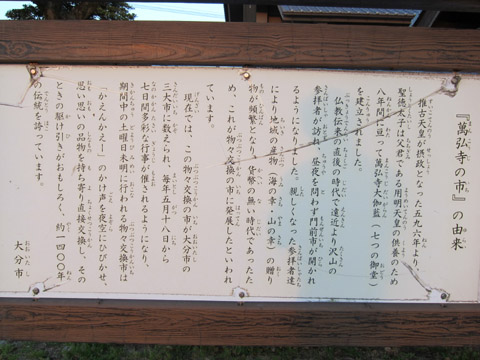 『萬弘寺の市』の由来
推古天皇が摂政となった五九六年より
聖徳太子は父君である用明天皇の供養のため
八年間に亘って萬弘寺大伽藍（七つの御堂）
を建立されました。
仏教伝来の直後の時代で遠近より沢山の
参拝者が訪れ、昼夜を問わず門前市が開かれ
るようになりました。親しくなった参拝者達
により地域の産物（海の幸・山の幸）の贈り
物が頻繁となり、貨幣の無い時代であったた
め、これが物々交換の市に発展したといわれ
ています。
現在では、この物々交換の市が大分市の
三大市に数えられ、毎年五月十八日から
七日間多彩な行事が催されるようになり、
期間中の土曜日未明に行われる物々交換市は
「かえんかえー」のかけ声を夜空にひびかせ、
思い思いの品物を持ち寄り直接交換し、その
ときの駆け引きがおもしろく、約一四〇〇年
の伝統を誇っています。
大分市